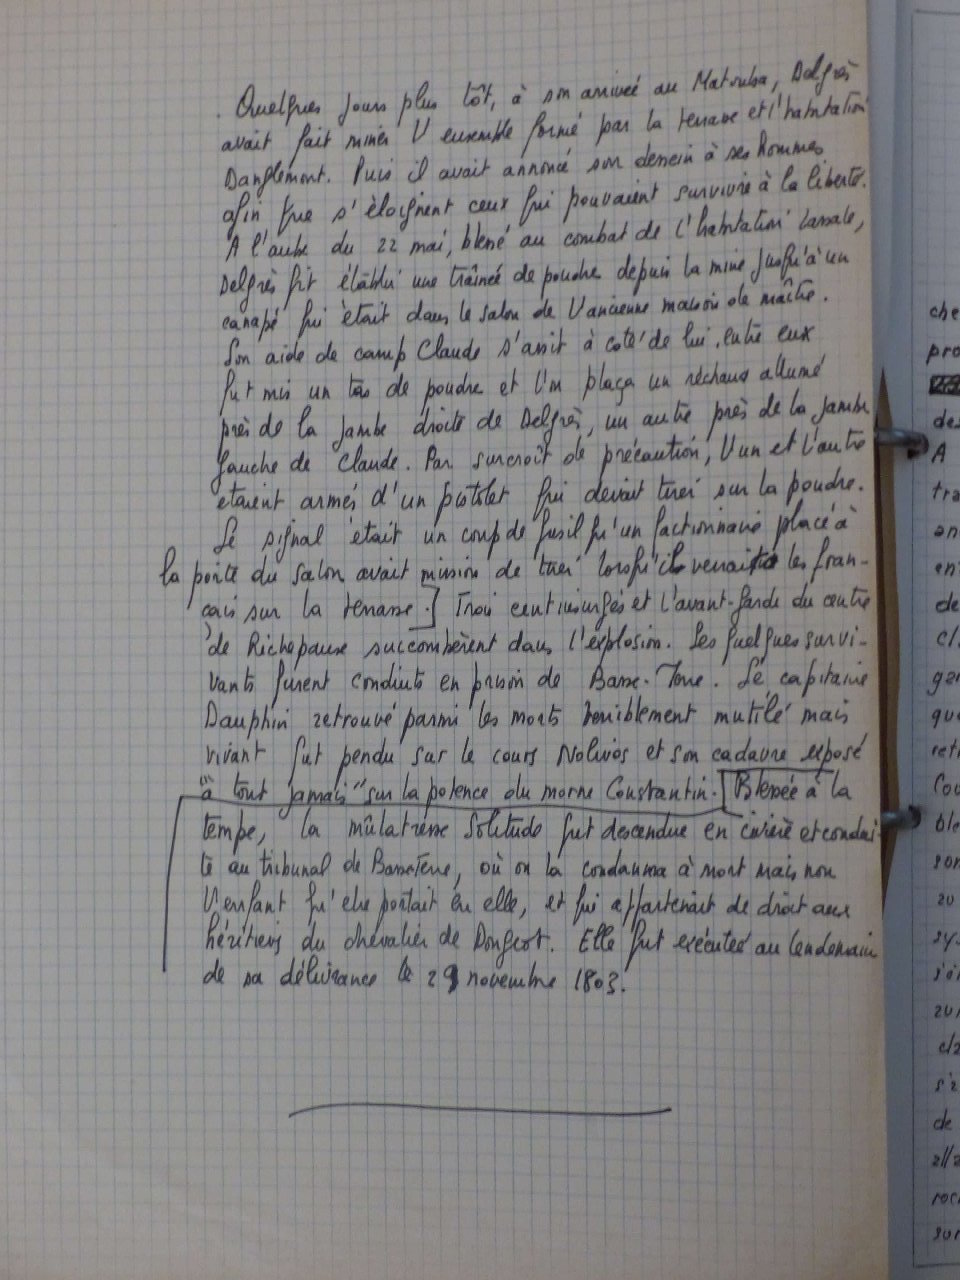 . Quelques jours plus tôt, à son arrivée au Matouba, Delgrès
avait fait miner l'ensemble formé par la terrasse et l'habitation
Danglemont. Puis il avait annoncé son dessein à ses hommes
afin que s'éloignent ceux qui pouvaient survivre à la liberté.
A l'aube du 22 mai, blessé au combat de l'habitation Lassale,
Delgrès fit établir une traînée de poudre depuis la mine jusqu'à un
canapé qui était dans le salon de l'ancienne maison de maître.
Son aide de camp Claude s'assit à coté de lui. entre eux
fut mis un tas de poudre et l'on plaça un réchaud allumé
près de la jambe droite de Delgrès, un autre près de la jambe
gauche de Claude. Par surcroît de précaution, l'un et l'autre
étaient armés d'un pistolet qui devait tirer sur la poudre.
Le signal était un coup de fusil qu'un factionnaire placé à
la porte du salon avait mission de tirer lorsqu'il verrait les fran-
çais sur la terrasse.] Trois cent insurgés et l'avant-garde du centre
de Richepanse succombèrent dans l'explosion. Les quelques survi-
vants furent conduits en prison de Basse-Terre. Le capitaine
Dauphin retrouvé parmi les morts horriblement mutilé mais
vivant fut pendu sur le cours Nolivos et son cadavre exposé
"à tout jamais" sur la potence du morne Constantin. [Blessée à la
tempe, la mûlatresse Solitude fut descendue en civière et condui-
te au tribunal de Basse Terre, où on la condamna à mort mais non
l'enfant qu'elle portait en elle, et qui appartenait de droit aux
héritiers du chevalier de Dangeot. Elle fut exécutée au lendemain
de sa délivrance le 29 novembre 1803.
che
pro
des
A
tra
an
en
de
cl
gar
que
reti
Cou
ble
son
zu
sy
s'o
cl2
s'2
de
roc
sur